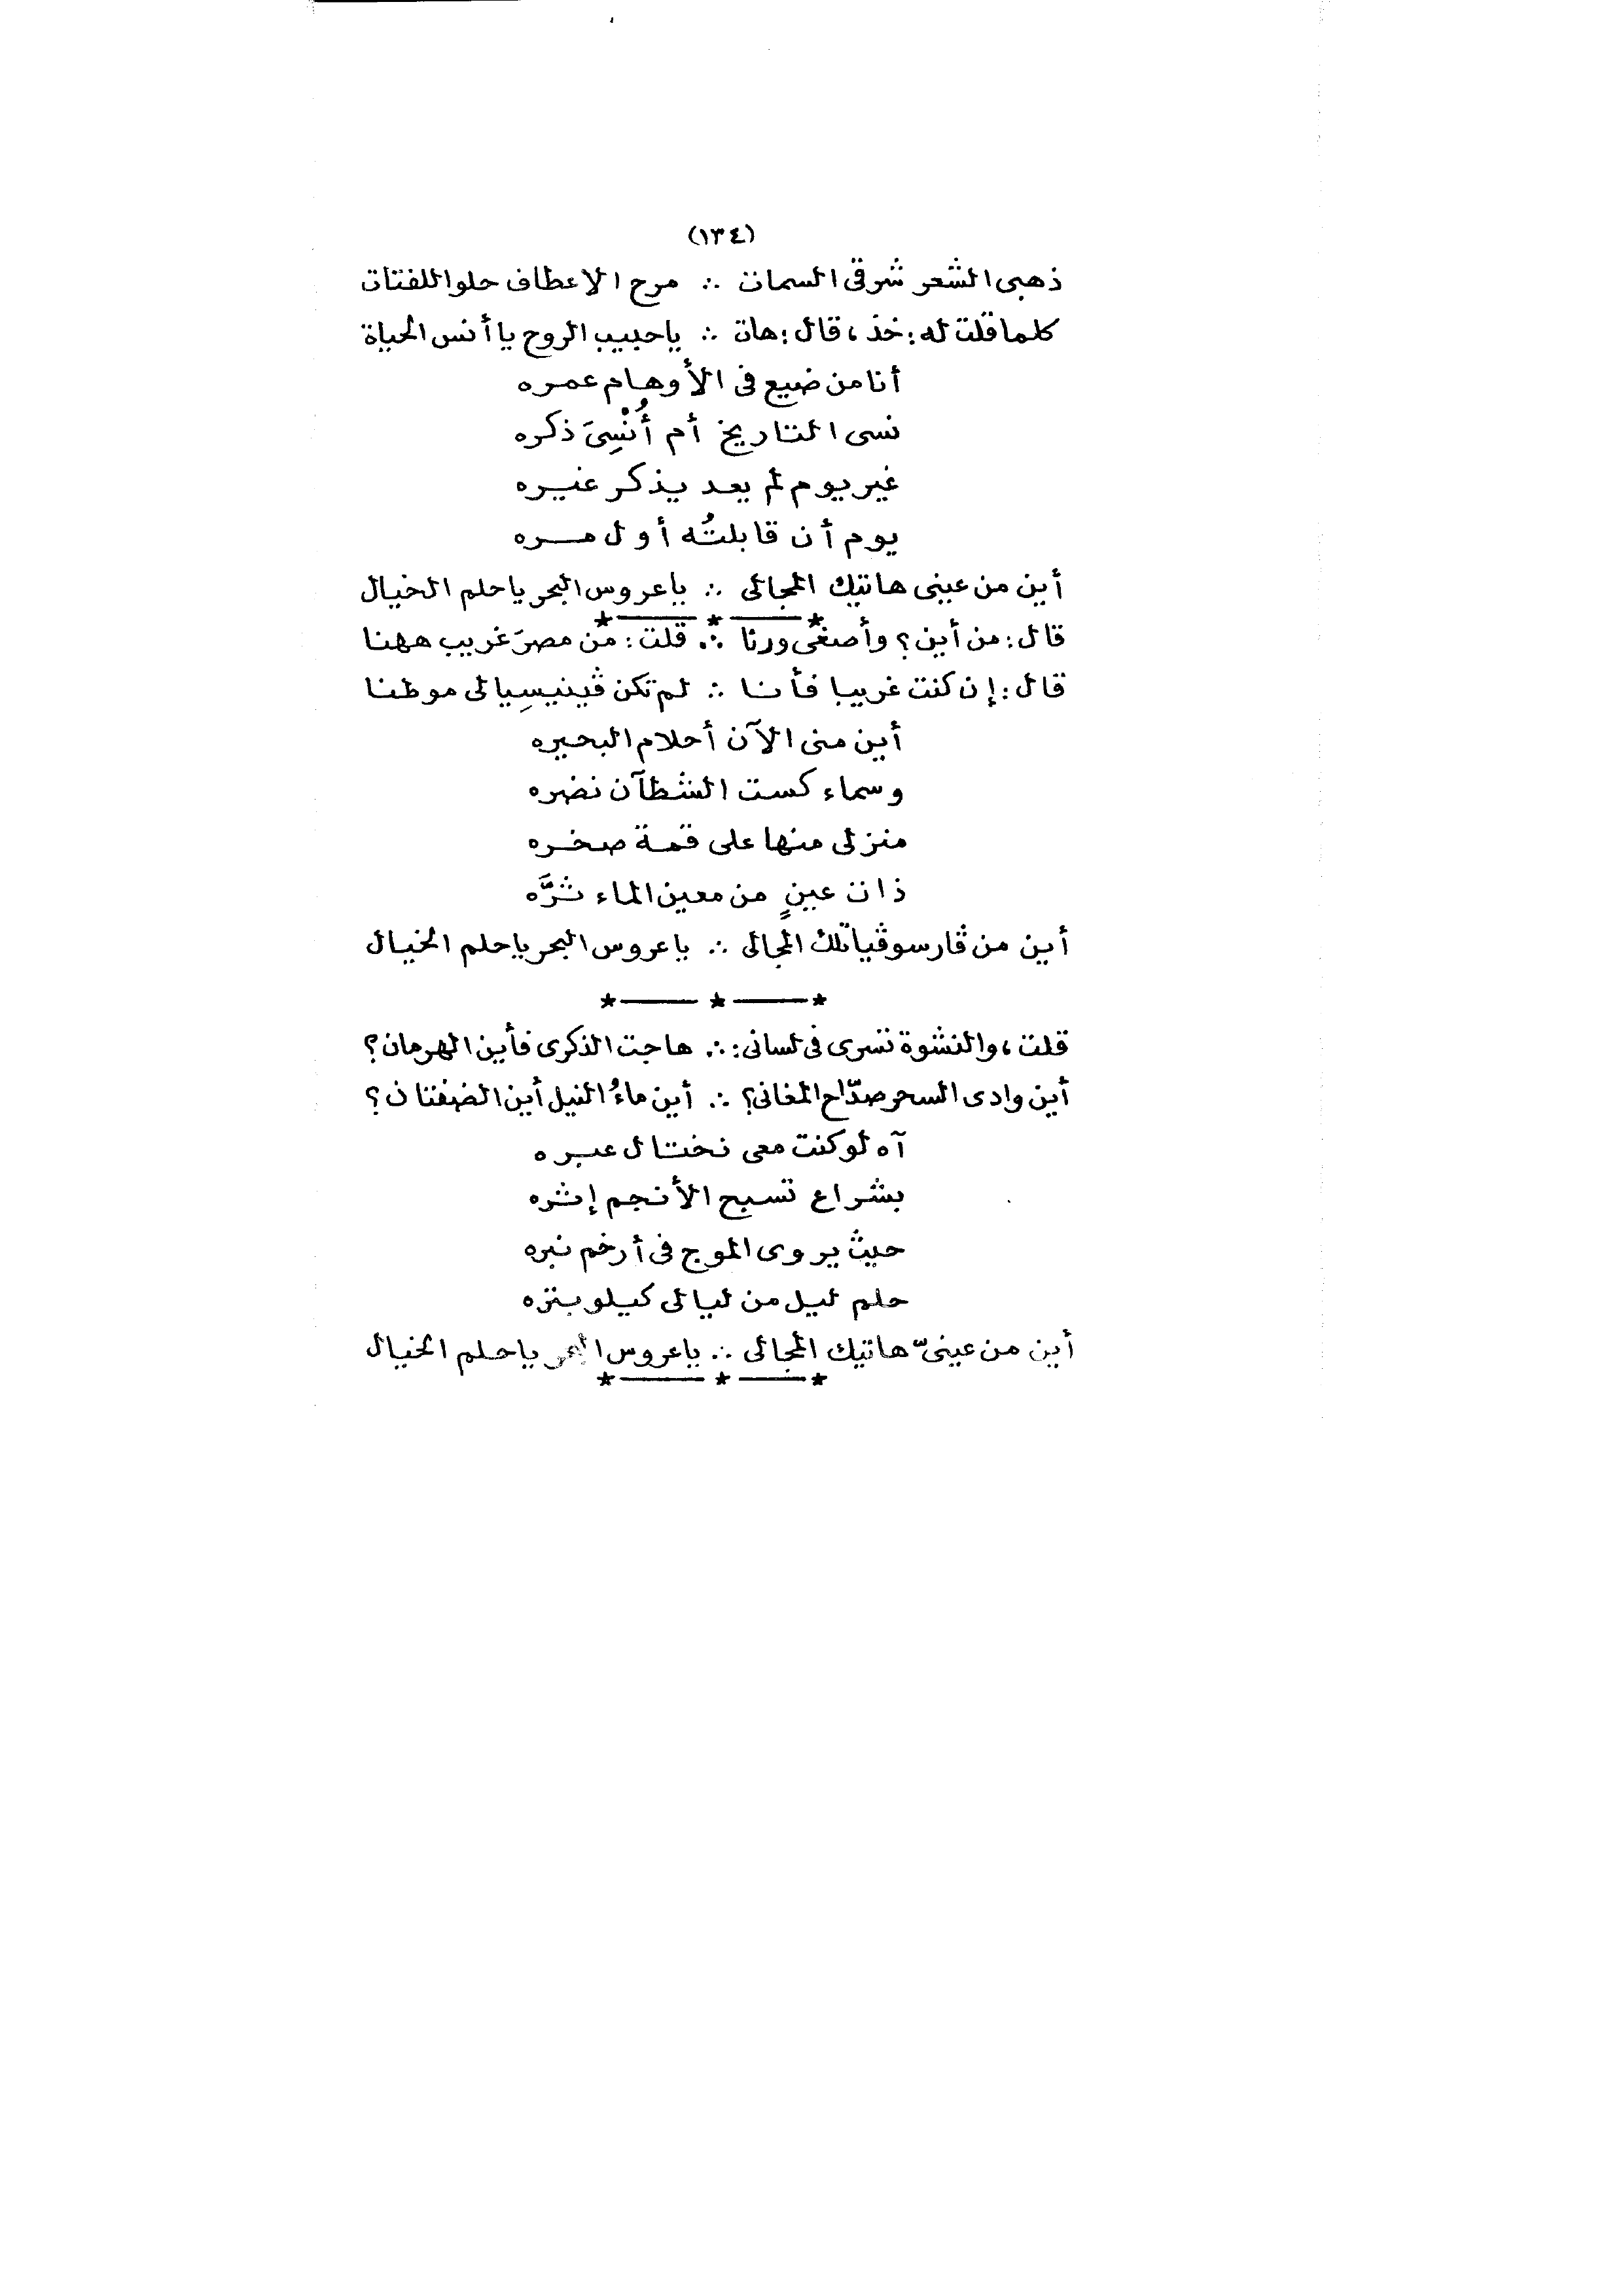 (١٣٤)
ذهبى الشعر شرقى السمات ∴ مرح الاعطاف حلو اللفتات
كلما قلت له: خذ، قال: هات ∴ ياحبيب الروح يا أنس الحياة
أنا من ضيع فى الأوهام عمره
نسى التاريخ أم أُنْسِىَ ذكره
غير يوم لم يعد يذكر غيره
يوم أن قابلتُه أول مره
أين من عينى هاتيك المجالى ∴ ياعروس البحر ياحلم الخيال
★ ——— ★ ——— ★
قال: من أين؟ وأصغى ورنا ∴ قلت: من مصرَ غريب ههنا
قال: إن كنت غريبا فأنا ∴ لم تكن ڤينيسِيا لى موطنا
أين منى الآن أحلام البحيره
وسماء كست الشطآن نضره
منزلى منها على قمة صخره
ذات عينٍ من معين الماء ثرَّه
أين من ڤارسوڤيا تلك المجالى ∴ ياعروس البحر ياحلم الخيال
★ ——— ★ ——— ★
قلت، والنشوة تسرى فى لسانى: ∴ هاجت الذكرى فأين الهرمان؟
أين وادى السحر صدّاح المغانى؟ ∴ أين ماءُ النيل أين الضفتان؟
آه لو كنت معى نختال عبره
بشراع تسبح الأنجم إثره
حيث يروى الموج فى أرخم نبره
حلم ليل من ليالى كيلوبتره
أين من عينىّ هاتيك المجالى ∴ ياعروس البحر ياحلم الخيال
★ ——— ★ ——— ★